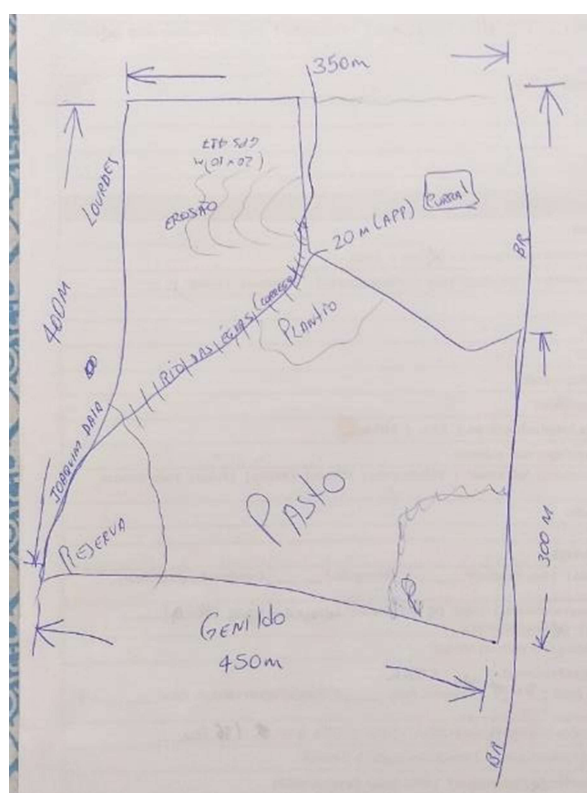 350m
LOURDES
400M
(20x10)M
EROSÃO
20 M (APP)
CURRAL
BR
RIO DAS ÉGUAS (CORREGO)
PLANTIO
JOAQUIM DAIA
RESERVA
PASTO
300 M
GENILDO
450m
BR